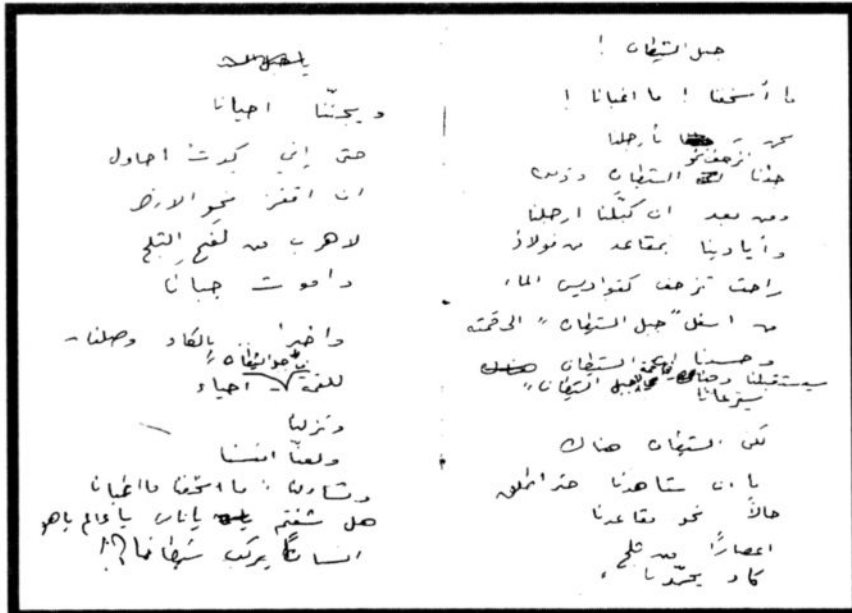 جبل الشيطان !
ما أسخفنا ! ما اغبانا !
نحن بأرجلنا
نزحف نحو
جئنا الشيطان
ومن بعد ان كبّلنا ارجلنا
وأيادينا بمقاعد من فولاذ
راحت تزحف كقواديس الماء
من اسفل "جبل الشيطان" الى قمته
وحسبنا الشيطان
سيستقبلنا جبل الشيطان"
لكن الشيطان هناك
ما ان شاهدنا حتى اطلق
حالاً نحو مقاعدنا
اعصاراً من ثلج
كاد يجمّدنا
ويجنّننا احيانا
حتى إني كدت احاول
ان اقفز نحو الارض
لاهرب من لفح الثلج
واموت جبانا
واخيرا بالكاد وصلنا
للقمة احياء
ونزلنا
ولعنّا انفسنا
وتساءلنا : ما اسخفنا ما اغبانا
هل شفتم ياناس ياعالم ياهو
انساناً يركب شيطانا؟!